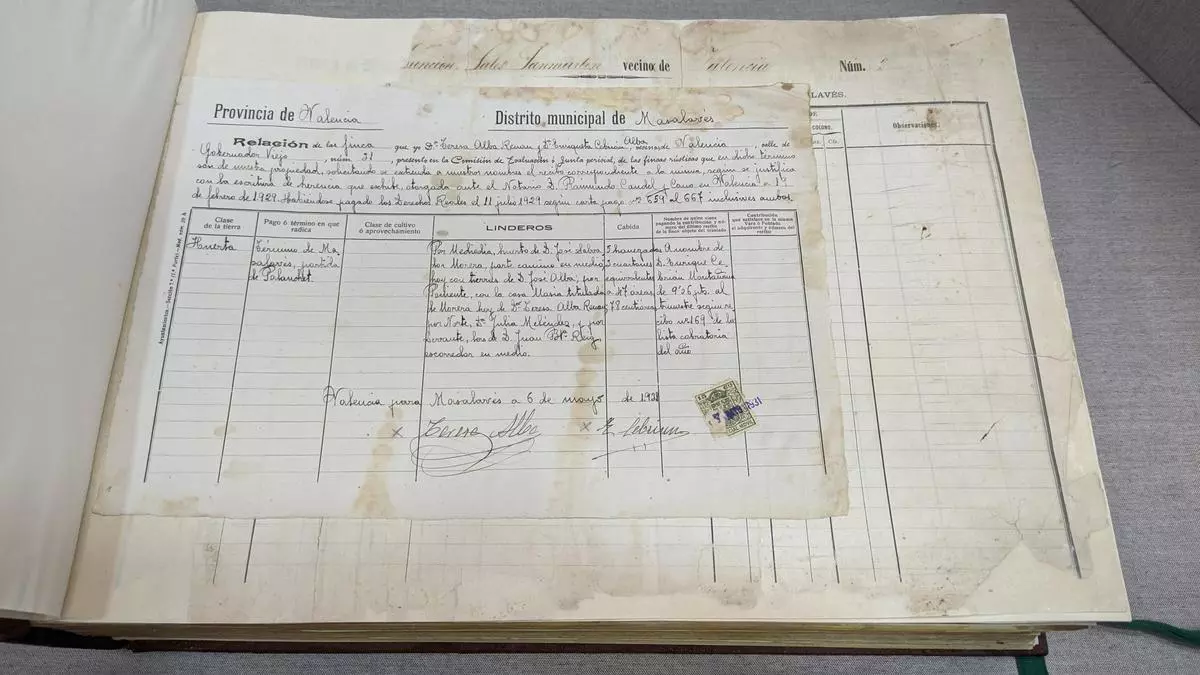 Sales Sanmartín vecino de Valencia Núm. 2
LAVÉS.
Provincia de Valencia Distrito municipal de Masalavés
Relación de las finca que yo Dª Teresa Alba Renau y Dª Enriqueta Cebrián Alba, vecinas de Valencia, calle de
Gobernador Viejo, núm. 31, presento en la Comisión de Evaluación ó Junta pericial, de las fincas rústicas que en dicho término
son de nuestra propiedad, solicitando se extienda a nuestro nombre el recibo correspondiente a la misma, según se justifica
con la escritura de herencia que exhibe, otorgada ante el Notario D. Raimundo Candel y Cano, en Valencia a 19
de febrero de 1929. Habiéndose pagado los Derechos Reales el 11 julio 1929 según carta pago nº 659 al 667 inclusives ambos
Clase de la tierra
Pago ó término en que radica
Clase de cultivo ó aprovechamiento
LINDEROS
Cabida
Nombre de quien viene pagando la contribución y número del último recibo de la finca objeto del traslado
Contribución que satisface en la misma Vara ó Poblado el adquirente y número del recibo
COLONO.
Cb.
Observaciones.
Huerta
Término de Ma-
salavés, partida
de
Por Mediodía, huerto de D. José Salva-
dor Morera, parte camino en medio
hoy con tierras de D. José Alba; por
Poniente, con la casa Masía titulada
de Morera hoy de Dª Teresa Alba Renau
por Norte, Dª Julia Meléndez, y por
Levante, los de D. Juan Btª Reig,
escorredor en medio.
5 hanegadas
3 cuartones
equivalentes
a 47 áreas
78 centiáreas
A nombre de
D. Enrique Ce-
brián Montañana
de 9'26 pts. al
trimestre según re-
cibo nº 169 de la
lista cobratoria
del año
Valencia para Masalavés a 6 de mayo de 1931
x Teresa Alba x E. Cebrián